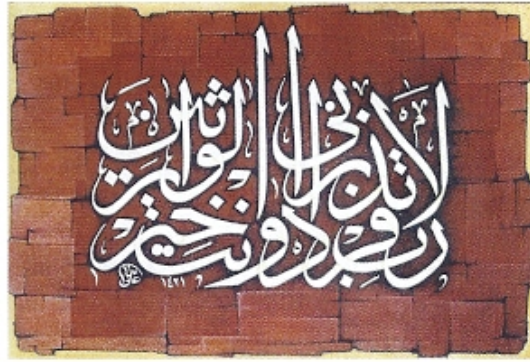 رب لا تذرني فردا وانت خير الوارثين
١٤٢١